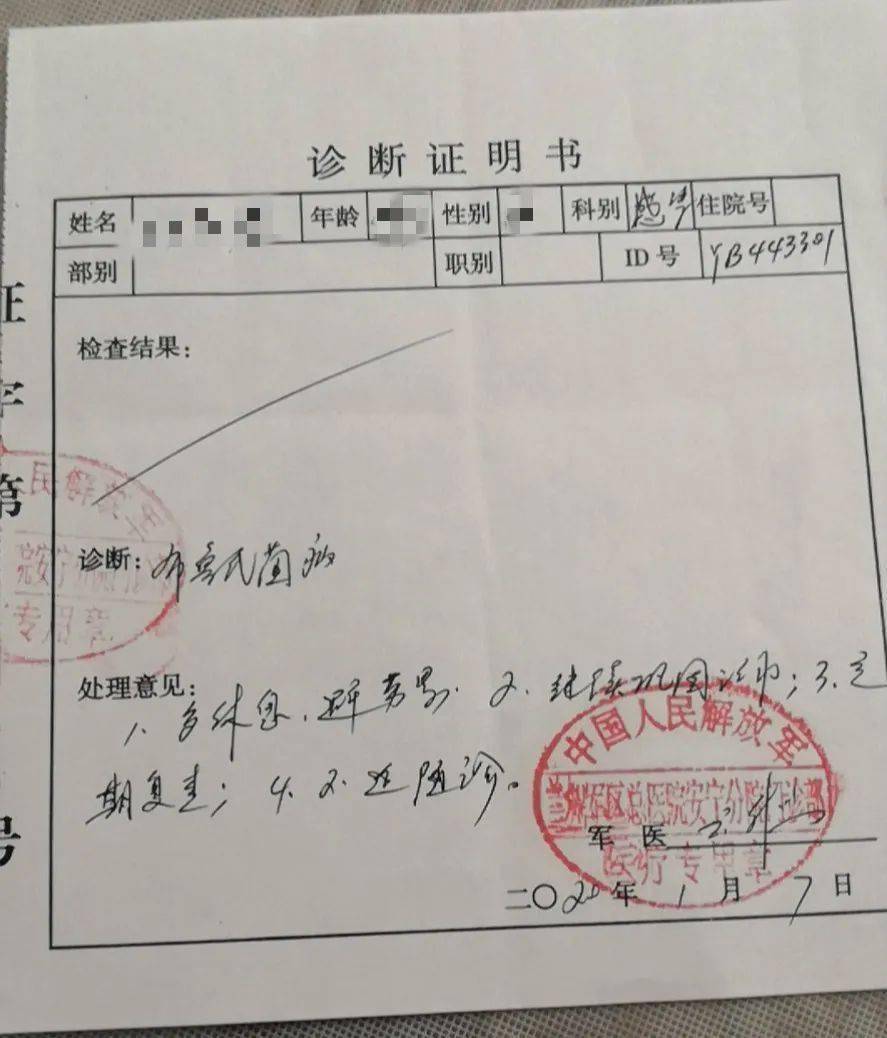 诊断证明书
姓名 年龄 性别 科别 感染 住院号
部别 职别 ID号 YB443301
检查结果：
诊断：布鲁氏菌病
处理意见：
1、多休息，避免劳累、2、继续巩固治疗；3、定
期复查；4、不适随诊。
中国人民解放军
区总医院安宁分院
医疗专用章
军医
二〇20年1月7日
证字第
号
民解放军
专用章